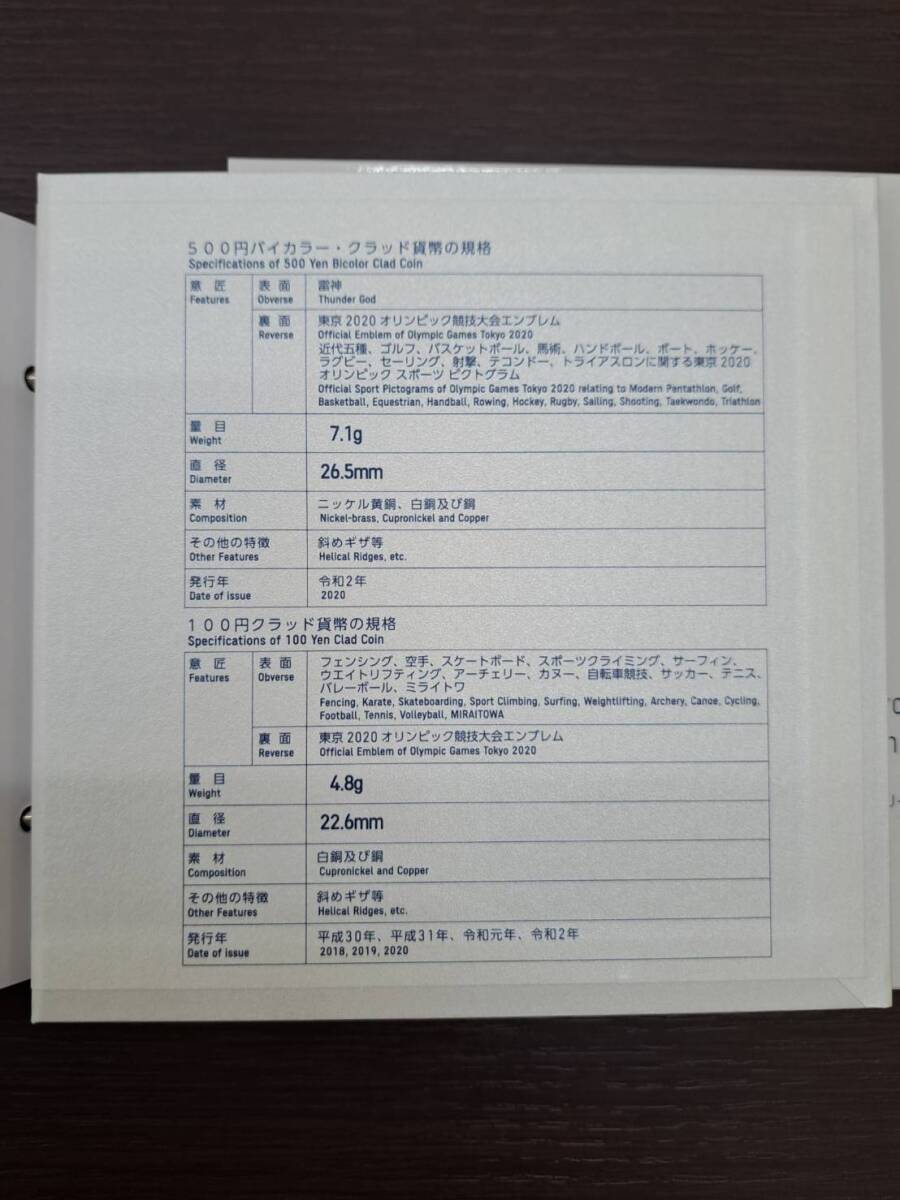 500円バイカラー・クラッド貨幣の規格
Specifications of 500 Yen Bicolor Clad Coin
意 匠
Features
表 面
Obverse
雷神
Thunder God
裏 面
Reverse
東京2020オリンピック競技大会エンブレム
Official Emblem of Olympic Games Tokyo 2020
近代五種、ゴルフ、バスケットボール、馬術、ハンドボール、ボート、ホッケー、
ラグビー、セーリング、射撃、テコンドー、トライアスロンに関する東京2020
オリンピック スポーツ ピクトグラム
Official Sport Pictograms of Olympic Games Tokyo 2020 relating to Modern Pentathlon, Golf,
Basketball, Equestrian, Handball, Rowing, Hockey, Rugby, Sailing, Shooting, Taekwondo, Triathlon
量 目
Weight
7.1g
直 径
Diameter
26.5mm
素 材
Composition
ニッケル黄銅、白銅及び銅
Nickel-brass, Cupronickel and Copper
その他の特徴
Other Features
斜めギザ等
Helical Ridges, etc.
発行年
Date of issue
令和2年
2020
100円クラッド貨幣の規格
Specifications of 100 Yen Clad Coin
意 匠
Features
表 面
Obverse
フェンシング、空手、スケートボード、スポーツクライミング、サーフィン、
ウエイトリフティング、アーチェリー、カヌー、自転車競技、サッカー、テニス、
バレーボール、ミライトワ
Fencing, Karate, Skateboarding, Sport Climbing, Surfing, Weightlifting, Archery, Canoe, Cycling,
Football, Tennis, Volleyball, MIRAITOWA
裏 面
Reverse
東京2020オリンピック競技大会エンブレム
Official Emblem of Olympic Games Tokyo 2020
量 目
Weight
4.8g
直 径
Diameter
22.6mm
素 材
Composition
白銅及び銅
Cupronickel and Copper
その他の特徴
Other Features
斜めギザ等
Helical Ridges, etc.
発行年
Date of issue
平成30年、平成31年、令和元年、令和2年
2018, 2019, 2020